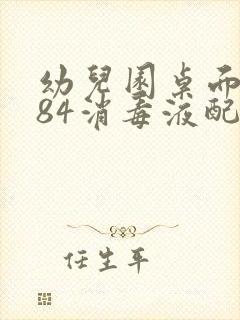 幼兒園桌面
84消毒液配
任生平